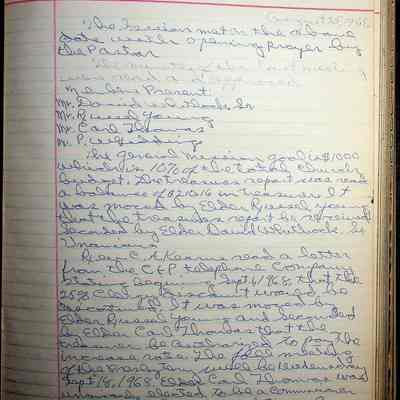 August 25, 1968
The Session met on the above
date with opening prayer by
the Pastor
The minutes of the last meeting
were read and approved
Members Present:
Mr. David Whitlock Sr
Mr. Russel Young
Mr. Carl Thomas
Mr. P. W. Gidding
The general mission goal is $1000
which is 10% of the total Church
budget. The treasures report was read
a balance of 820.16 in treasure. It
was moved by Elder Russel young
that the treasures report be received
seconded by Elder David Whitlock. Sr
Unanious
Rev. C. A. Kearns read a letter
from the C&P. telephone Company
stating beginning Sept. 1, 1968, that the
25% Clergy discount would be
discontinued. It was moved by
Elder Russel Young and seconded
by Elder Carl Thomas that the
treasurer be authorized to pay the
increase rates. The fall meeting
of the Presbytery will be Wednesday
Sept. 18, 1968. Elder Carl Thomas was
elected to be a Commissioner